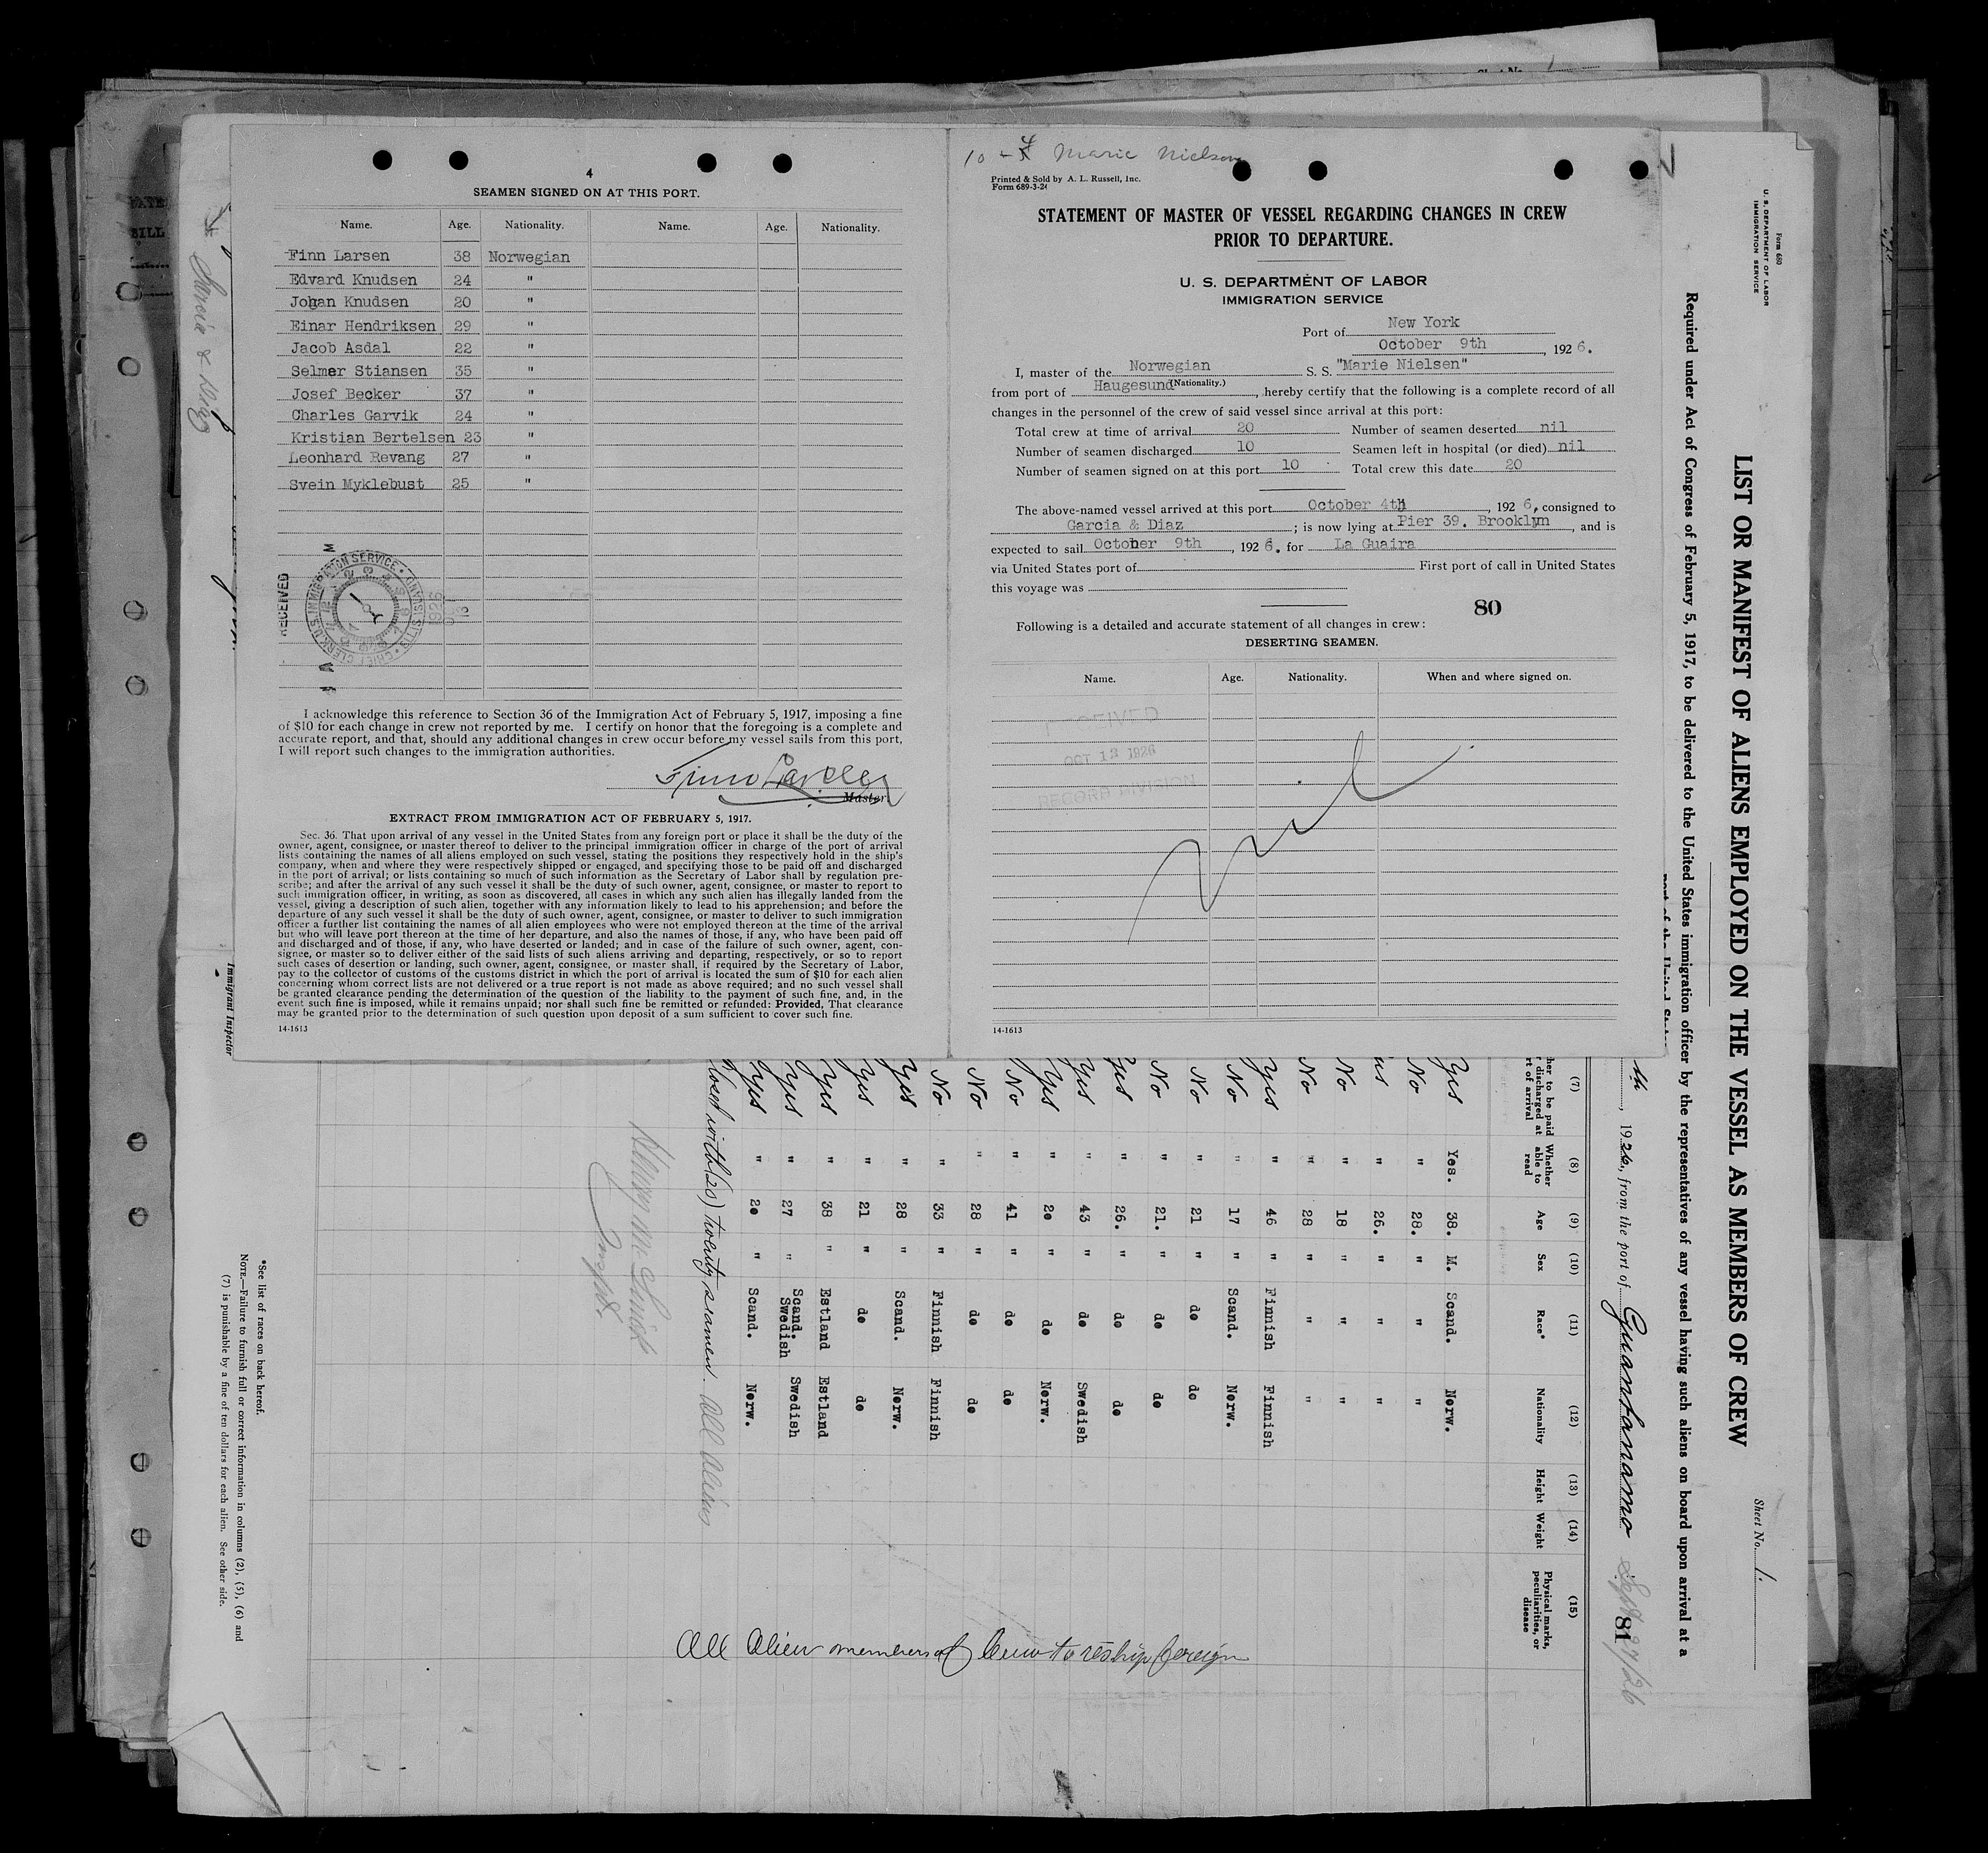 4
SEAMEN SIGNED ON AT THIS PORT.
Name. Age. Nationality. Name. Age. Nationality.
Finn Larsen 38 Norwegian
Edvard Knudsen 24 "
Johan Knudsen 20 "
Einar Hendriksen 29 "
Jacob Asdal 22 "
Selmer Stiansen 35 "
Josef Becker 37 "
Charles Garvik 24 "
Kristian Bertelsen 23 "
Leonhard Revang 27 "
Svein Myklebust 25 "
RECEIVED
1926
I acknowledge this reference to Section 36 of the Immigration Act of February 5, 1917, imposing a fine
of $10 for each change in crew not reported by me. I certify on honor that the foregoing is a complete and
accurate report, and that, should any additional changes in crew occur before my vessel sails from this port,
I will report such changes to the immigration authorities.
Finn Larsen
Master.
EXTRACT FROM IMMIGRATION ACT OF FEBRUARY 5, 1917.
Sec. 36. That upon arrival of any vessel in the United States from any foreign port or place it shall be the duty of the
owner, agent, consignee, or master thereof to deliver to the principal immigration officer in charge of the port of arrival
lists containing the names of all aliens employed on such vessel, stating the positions they respectively hold in the ship's
company, when and where they were respectively shipped or engaged, and specifying those to be paid off and discharged
in the port of arrival; or lists containing so much of such information as the Secretary of Labor shall by regulation pre-
scribe; and after the arrival of any such vessel it shall be the duty of such owner, agent, consignee, or master to report to
such immigration officer, in writing, as soon as discovered, all cases in which any such alien has illegally landed from the
vessel, giving a description of such alien, together with any information likely to lead to his apprehension; and before the
departure of any such vessel it shall be the duty of such owner, agent, consignee, or master to deliver to such immigration
officer a further list containing the names of all alien employees who were not employed thereon at the time of the arrival
but who will leave port thereon at the time of her departure, and also the names of those, if any, who have been paid off
and discharged and of those, if any, who have deserted or landed; and in case of the failure of such owner, agent, con-
signee, or master so to deliver either of the said lists of such aliens arriving and departing, respectively, or so to report
such cases of desertion or landing, such owner, agent, consignee, or master shall, if required by the Secretary of Labor,
pay to the collector of customs of the customs district in which the port of arrival is located the sum of $10 for each alien
concerning whom correct lists are not delivered or a true report is not made as above required; and no such vessel shall
be granted clearance pending the determination of the question of the liability to the payment of such fine, and, in the
event such fine is imposed, while it remains unpaid; nor shall such fine be remitted or refunded: Provided, That clearance
may be granted prior to the determination of such question upon deposit of a sum sufficient to cover such fine.
14-1613
10 - 4 Marie Nielson
Printed & Sold by A. L. Russell, Inc.
Form 689-3-24
STATEMENT OF MASTER OF VESSEL REGARDING CHANGES IN CREW
PRIOR TO DEPARTURE.
U. S. DEPARTMENT OF LABOR
IMMIGRATION SERVICE
Port of New York
October 9th, 1926.
I, master of the Norwegian S. S. "Marie Nielsen"
(Nationality.)
from port of Haugesund, hereby certify that the following is a complete record of all
changes in the personnel of the crew of said vessel since arrival at this port:
Total crew at time of arrival 20 Number of seamen deserted nil
Number of seamen discharged 10 Seamen left in hospital (or died) nil
Number of seamen signed on at this port 10 Total crew this date 20
The above-named vessel arrived at this port October 4th, 1926, consigned to
Garcia & Diaz; is now lying at Pier 39. Brooklyn, and is
expected to sail October 9th, 1926. for La Guaira
via United States port of First port of call in United States
this voyage was
80
Following is a detailed and accurate statement of all changes in crew:
DESERTING SEAMEN.
Name. Age. Nationality. When and where signed on.
RECEIVED
OCT 13 1926
RECORD DIVISION
Nil
14-1613
Form 680
U. S. DEPARTMENT OF LABOR
IMMIGRATION SERVICE
Sheet No. 1.
LIST OR MANIFEST OF ALIENS EMPLOYED ON THE VESSEL AS MEMBERS OF CREW
Required under Act of Congress of February 5, 1917, to be delivered to the United States immigration officer by the representatives of any vessel having such aliens on board upon arrival at a
port of the United States
1926, from the port of Guantanamo Sept 27/26
81
(7) (8) (9) (10) (11) (12) (13) (14) (15)
Whether able to read Age Sex Race* Nationality Height Weight Physical marks, peculiarities, or disease
Yes Yes. 38. M. Scand. Norw.
No " 28. " " "
" 26. " " "
No " 18 " " "
No " 28 " " "
Yes " 46 " Finnish Finnish
No " 17 " Scand. Norw.
No " 21 " do do
No " 21. " do do
Yes " 26. " do do
Yes " 43 " do Swedish
Yes " 20 " do Norw.
No " 41 " do do
No " 28 " do do
No " 33 " Finnish Finnish
Yes " 28 " Scand. Norw.
Yes " 21 " do do
Yes " 38 " Estland Estland
Yes " 27 " Scand. Swedish Swedish
Yes " 20 " Scand. Norw.
with (20) twenty seamen. All Aliens
All Alien members of Crew to reship foreign
*See list of races on back hereof.
NOTE.—Failure to furnish full or correct information in columns (2), (5), (6) and
(7) is punishable by a fine of ten dollars for each alien. See other side.
Immigrant Inspector
Garcia & Diaz